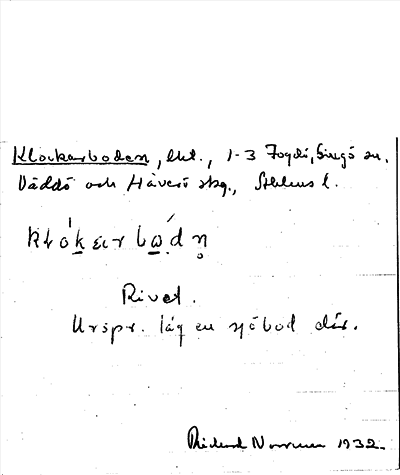 Klockarboden, lht., 1-3 Fogdö, Singö sn.
Väddö och Häverö skg., Sthlms l.
Rivet.
Urspr. låg en sjöbod där.
Rickard Norrman 1932.